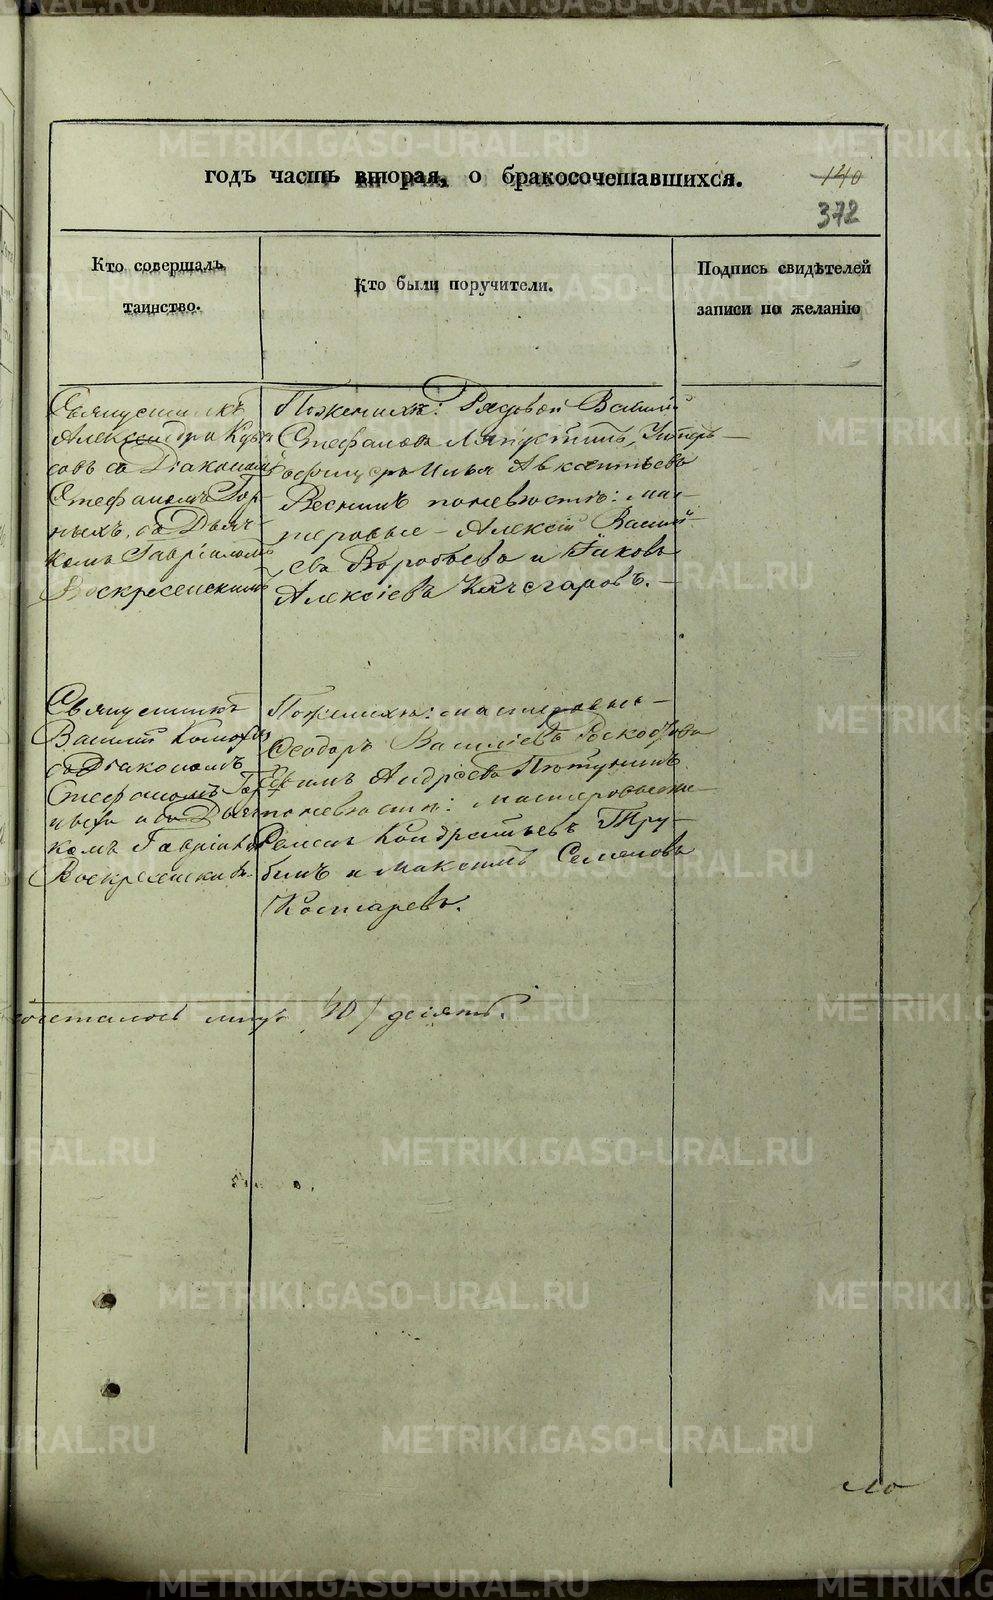 годъ часть вторая, о бракосочетавшихся.
140
372
Кто совершалъ
таинство.
Кто были поручители.
Подпись свидѣтелей
записи по желанію
Священникъ
Александръ
совъ съ Діакономъ
Стефаномъ Гор-
ныхъ, съ Дьяч-
комъ Гавріиломъ
Воскресенскимъ
По женихѣ: Рядовой Василій
Стефановъ Лапустинъ, Унтеръ
офицеръ Илья
по невѣстѣ: мас-
теровые Алексій Василь-
евъ Воробьевъ и Іаковъ
Алексіевъ
Священникъ
Василій
съ Діакономъ
Стефаномъ Гор-
ныхъ и съ Дьяч-
комъ Гавріиломъ
Воскресенскимъ
По женихѣ: мастеровые
Ѳеодоръ Василіевъ
Ефимъ Андреевъ
по невѣстѣ: мастеровые
Романъ Кондратьевъ Тру-
бинъ и Максимъ Семеновъ
Костаревъ.
сочеталось лицъ /10/ десять.
METRIKI.GASO-URAL.RU